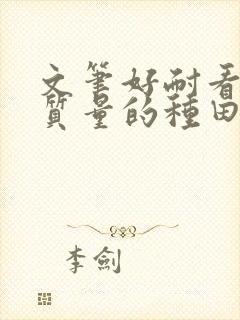 文筆好耐看
質量的種田
李劍